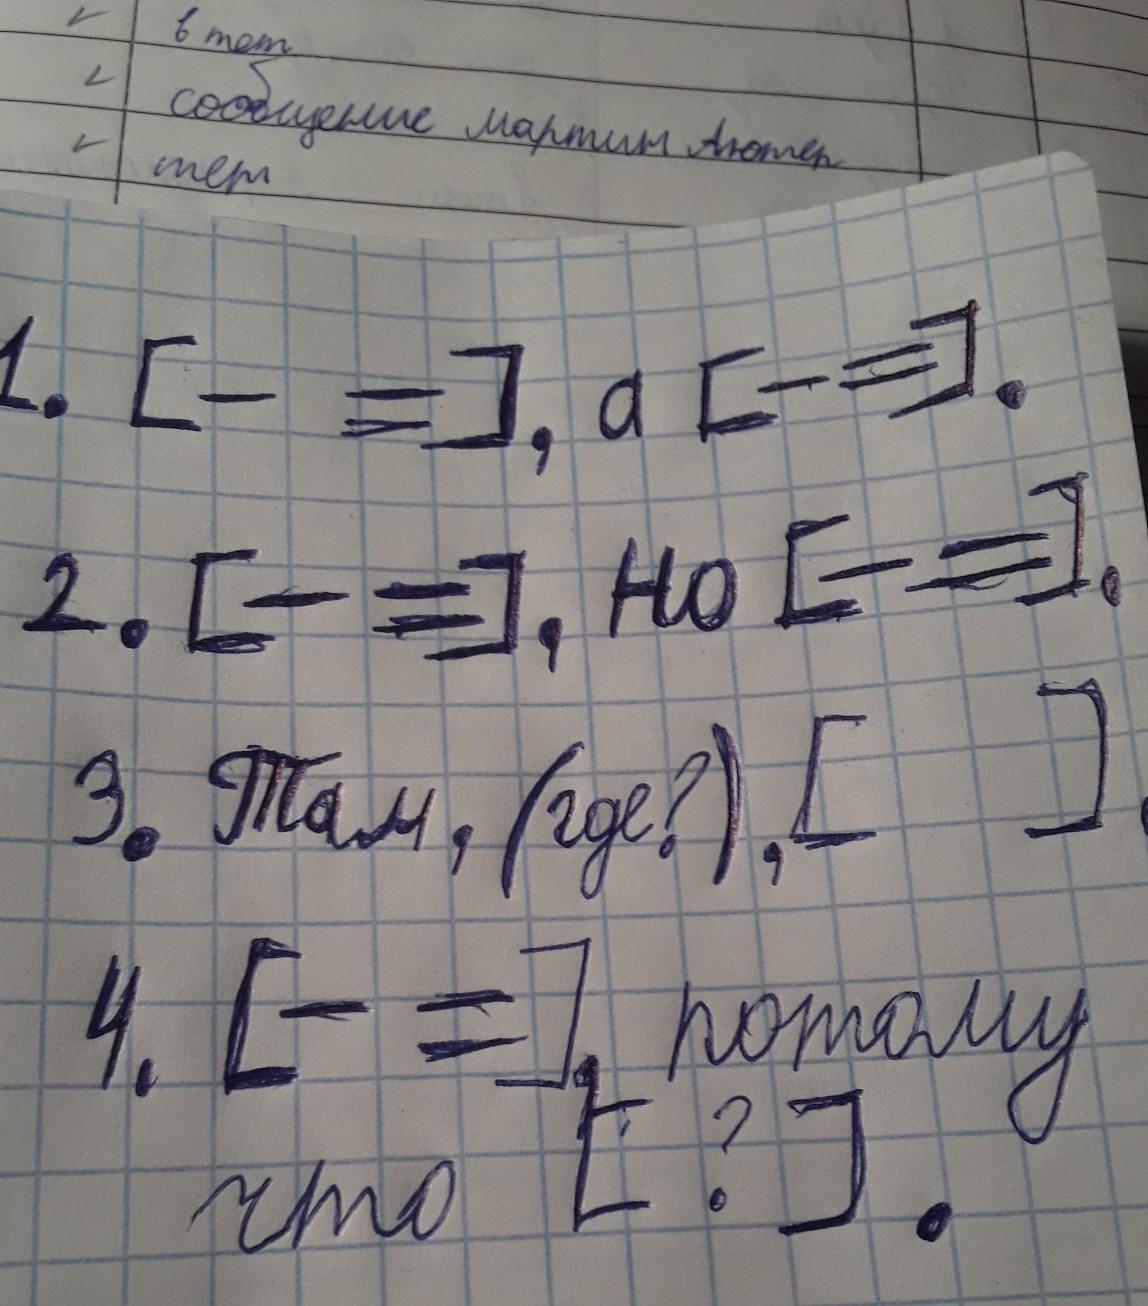 в тет
сообщение мартин Лютер
тет
1. [– =], а [– =].
2. [– =], но [– =].
3. Там, (где?), [ ]
4. [– =], потому
что [ ? ].